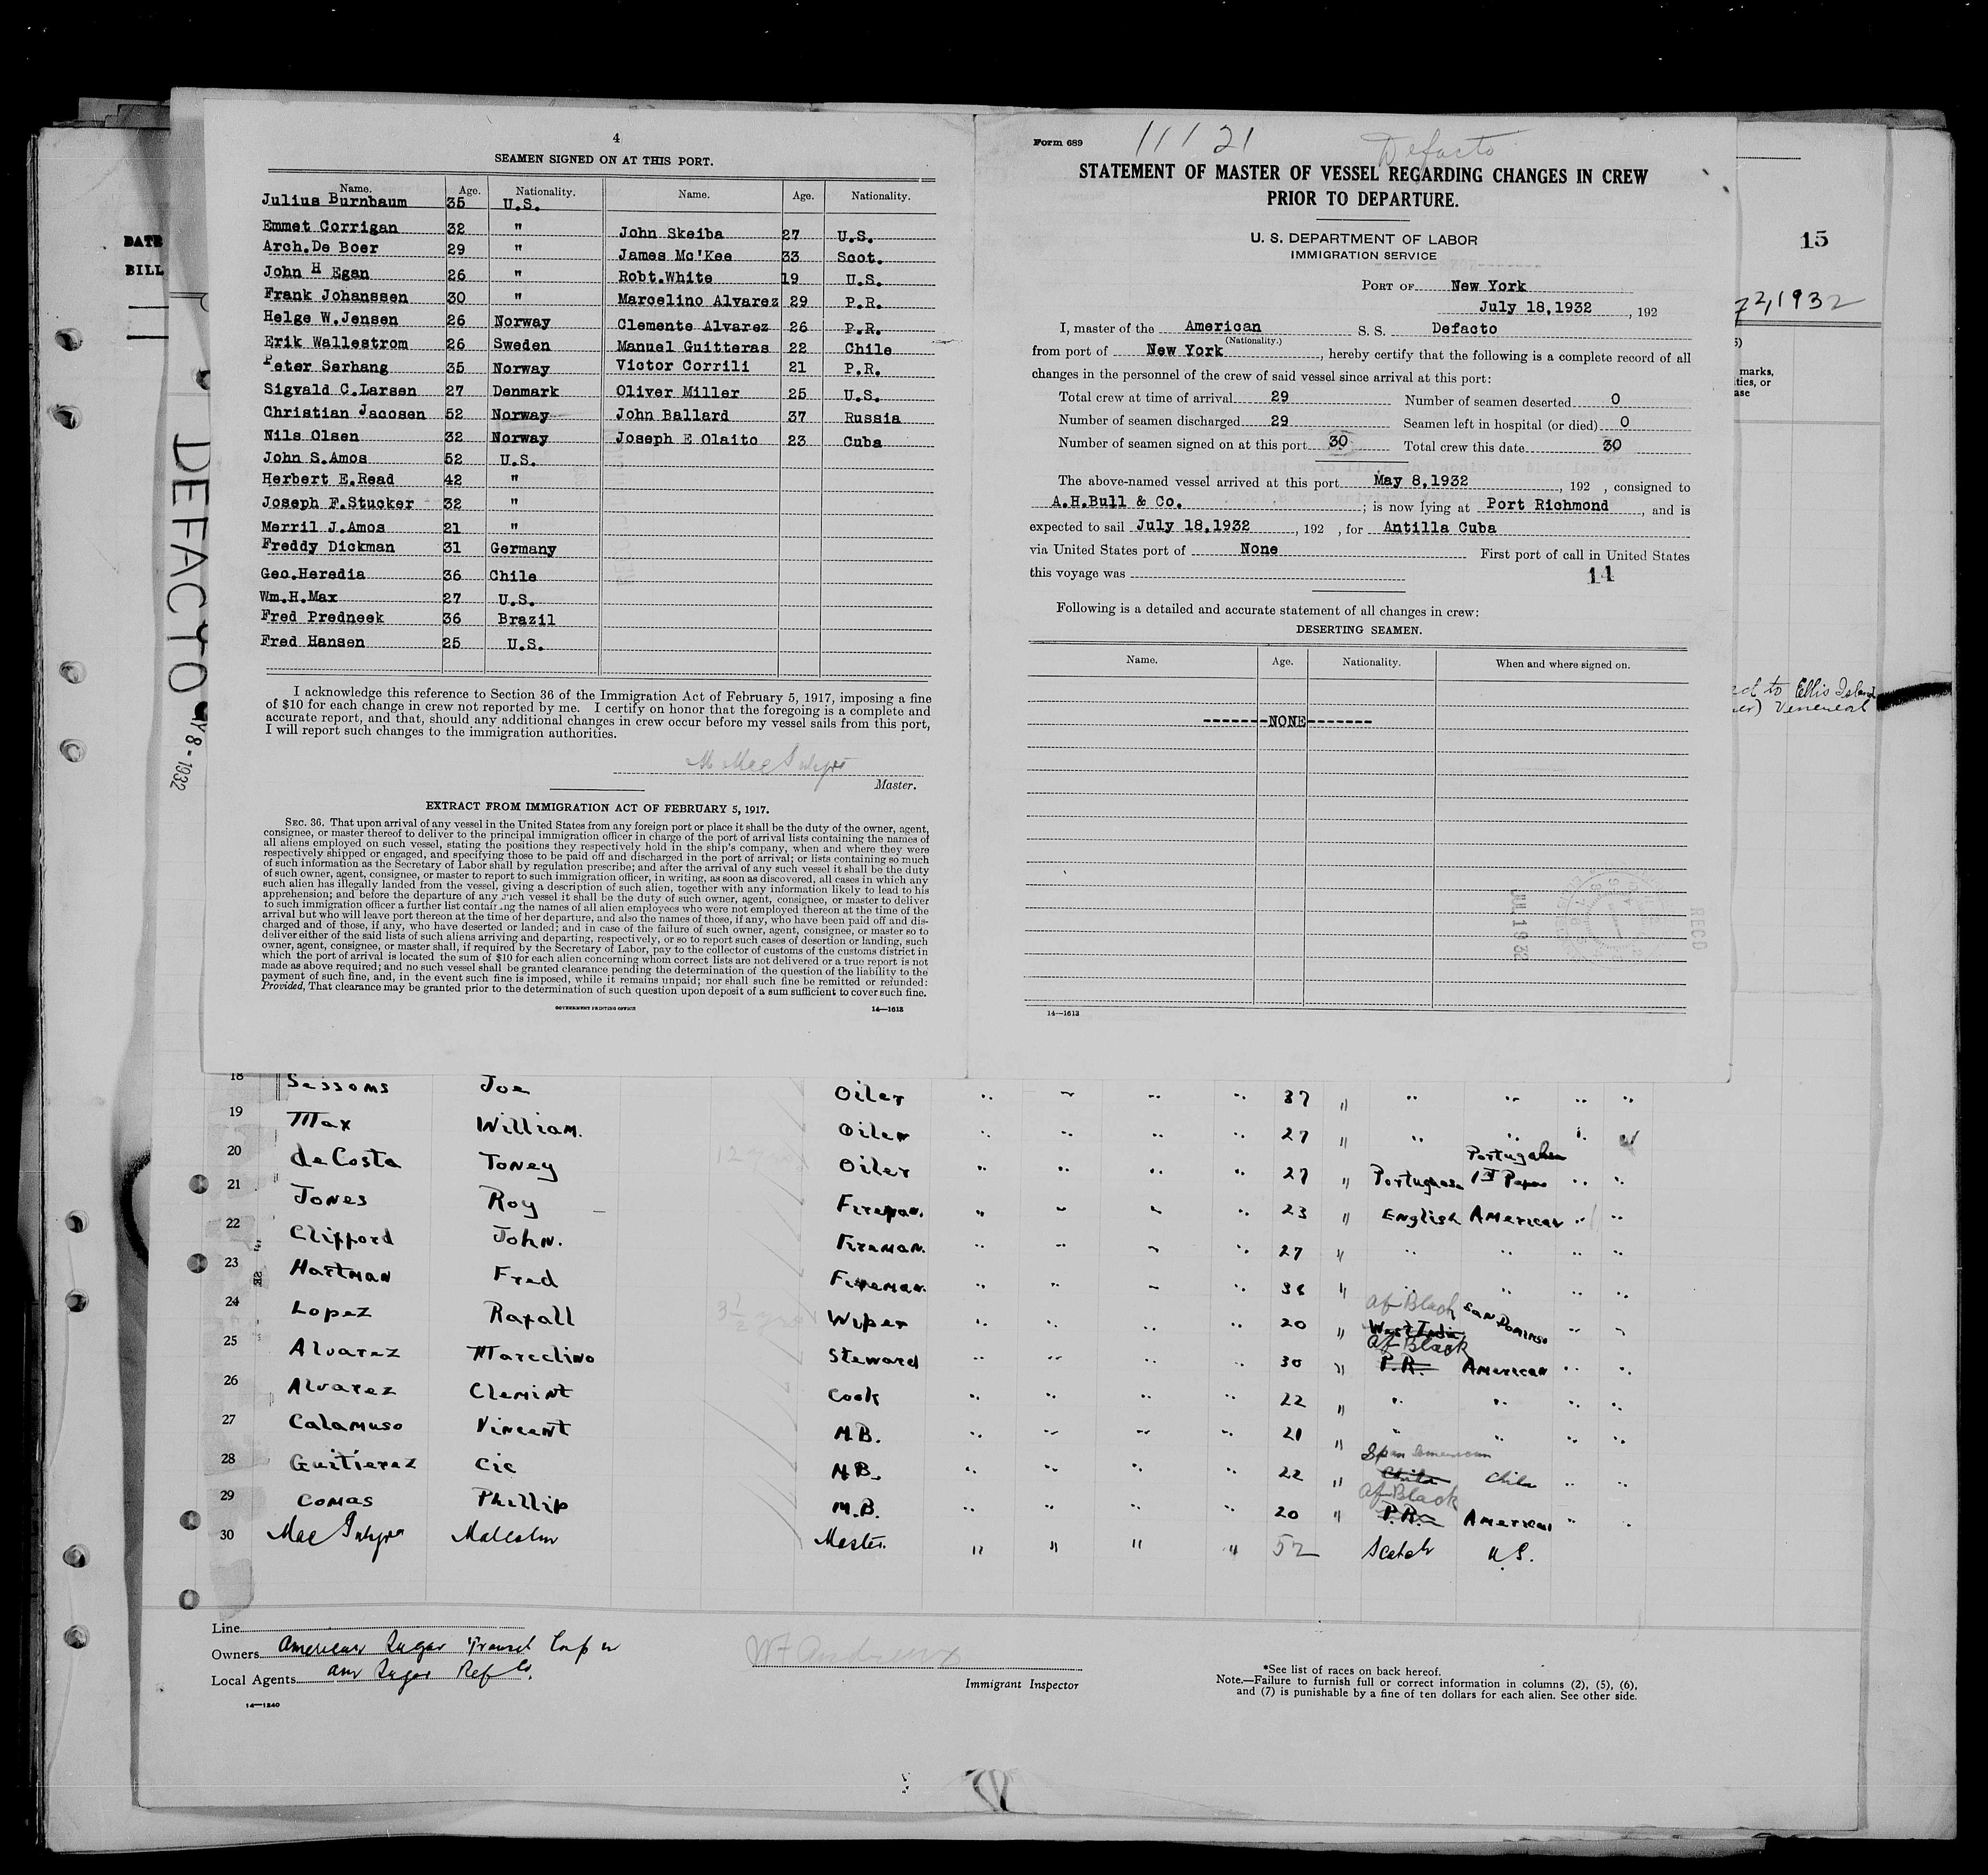 4
SEAMEN SIGNED ON AT THIS PORT.
Name. Age. Nationality. Name. Age. Nationality.
Julius Burnbaum 35 U.S.
Emmet Corrigan 32 " John Skeiba 27 U.S.
Arch.De Boer 29 " James Mc'Kee 33 Scot.
John H Egan 26 " Robt.White 19 U.S.
Frank Johanssen 30 " Marcelino Alvarez 29 P.R.
Helge W.Jensen 26 Norway Clemente Alvarez 26 P.R.
Erik Wallestrom 26 Sweden Manuel Guitteras 22 Chile
Peter Serhang 35 Norway Victor Corrili 21 P.R.
Sigvald C.Larsen 27 Denmark Oliver Miller 25 U.S.
Christian Jacosen 52 Norway John Ballard 37 Russia
Nils Olsen 32 Norway Joseph E Olaito 23 Cuba
John S.Amos 52 U.S.
Herbert E.Read 42 "
Joseph F.Stucker 32 "
Merril J.Amos 21 "
Freddy Dickman 31 Germany
Geo.Heredia 36 Chile
Wm.H.Max 27 U.S.
Fred Predneek 36 Brazil
Fred Hansen 25 U.S.
I acknowledge this reference to Section 36 of the Immigration Act of February 5, 1917, imposing a fine
of $10 for each change in crew not reported by me. I certify on honor that the foregoing is a complete and
accurate report, and that, should any additional changes in crew occur before my vessel sails from this port,
I will report such changes to the immigration authorities.
Master.
EXTRACT FROM IMMIGRATION ACT OF FEBRUARY 5, 1917.
SEC. 36. That upon arrival of any vessel in the United States from any foreign port or place it shall be the duty of the owner, agent,
consignee, or master thereof to deliver to the principal immigration officer in charge of the port of arrival lists containing the names of
all aliens employed on such vessel, stating the positions they respectively hold in the ship's company, when and where they were
respectively shipped or engaged, and specifying those to be paid off and discharged in the port of arrival; or lists containing so much
of such information as the Secretary of Labor shall by regulation prescribe; and after the arrival of any such vessel it shall be the duty
of such owner, agent, consignee, or master to report to such immigration officer, in writing, as soon as discovered, all cases in which any
such alien has illegally landed from the vessel, giving a description of such alien, together with any information likely to lead to his
apprehension; and before the departure of any such vessel it shall be the duty of such owner, agent, consignee, or master to deliver
to such immigration officer a further list containing the names of all alien employees who were not employed thereon at the time of the
arrival but who will leave port thereon at the time of her departure, and also the names of those, if any, who have been paid off and dis-
charged and of those, if any, who have deserted or landed; and in case of the failure of such owner, agent, consignee, or master so to
deliver either of the said lists of such aliens arriving and departing, respectively, or so to report such cases of desertion or landing, such
owner, agent, consignee, or master shall, if required by the Secretary of Labor, pay to the collector of customs of the customs district in
which the port of arrival is located the sum of $10 for each alien concerning whom correct lists are not delivered or a true report is not
made as above required; and no such vessel shall be granted clearance pending the determination of the question of the liability to the
payment of such fine, and, in the event such fine is imposed, while it remains unpaid; nor shall such fine be remitted or refunded:
Provided, That clearance may be granted prior to the determination of such question upon deposit of a sum sufficient to cover such fine.
GOVERNMENT PRINTING OFFICE 14—1613
Form 689 11121 Defacto
STATEMENT OF MASTER OF VESSEL REGARDING CHANGES IN CREW
PRIOR TO DEPARTURE.
U. S. DEPARTMENT OF LABOR
IMMIGRATION SERVICE
PORT OF New York
July 18,1932, 192
I, master of the American S. S. Defacto
(Nationality.)
from port of New York, hereby certify that the following is a complete record of all
changes in the personnel of the crew of said vessel since arrival at this port:
Total crew at time of arrival 29 Number of seamen deserted 0
Number of seamen discharged 29 Seamen left in hospital (or died) 0
Number of seamen signed on at this port 30 Total crew this date 30
The above-named vessel arrived at this port May 8,1932, 192 , consigned to
A.H.Bull & Co. ; is now lying at Port Richmond, and is
expected to sail July 18,1932, 192 , for Antilla Cuba
via United States port of None First port of call in United States
this voyage was 11
Following is a detailed and accurate statement of all changes in crew:
DESERTING SEAMEN.
Name. Age. Nationality. When and where signed on.
-------NONE-------
JUL 19 32
RECD
14—1613
DATE
BILL
DEFACTO MY 8-1932
15
2,1932
marks,
ties, or
ase
to Ellis Island
Venereal
18 Sessoms Joe Oiler " " " " 37 " " " " "
19 Max William. Oiler " " " " 27 " " " "
20 deCosta Toney Oiler " " " " 27 " Portuguese 1st Paper " "
21 Jones Roy Fireman. " " " " 23 " English American " "
22 Clifford John. Fireman. " " " " 27 " " " " "
23 Hartman Fred Fireman. " " " " 36 " " " " "
24 Lopez Rafall Wiper " " " " 20 " Af Black West India San Domingo " "
25 Alvarez Marcelino Steward " " " " 30 " Af Black P.R. American " "
26 Alvarez Clemint Cook " " " " 22 " " " " "
27 Calamuso Vincent M.B. " " " " 21 " " " " "
28 Guitierez Cic M.B. " " " " 22 " Span American Chile Chile " "
29 Comas Phillip M.B. " " " " 20 " Af Black P.R. American " "
30 Malcolm Master. " " " " 52 Scotch U.S.
Line
Owners American Sugar Transit Corp
Local Agents Am Sugar Ref Co.
14—1240
W F Andrews
Immigrant Inspector
*See list of races on back hereof.
Note.—Failure to furnish full or correct information in columns (2), (5), (6),
and (7) is punishable by a fine of ten dollars for each alien. See other side.